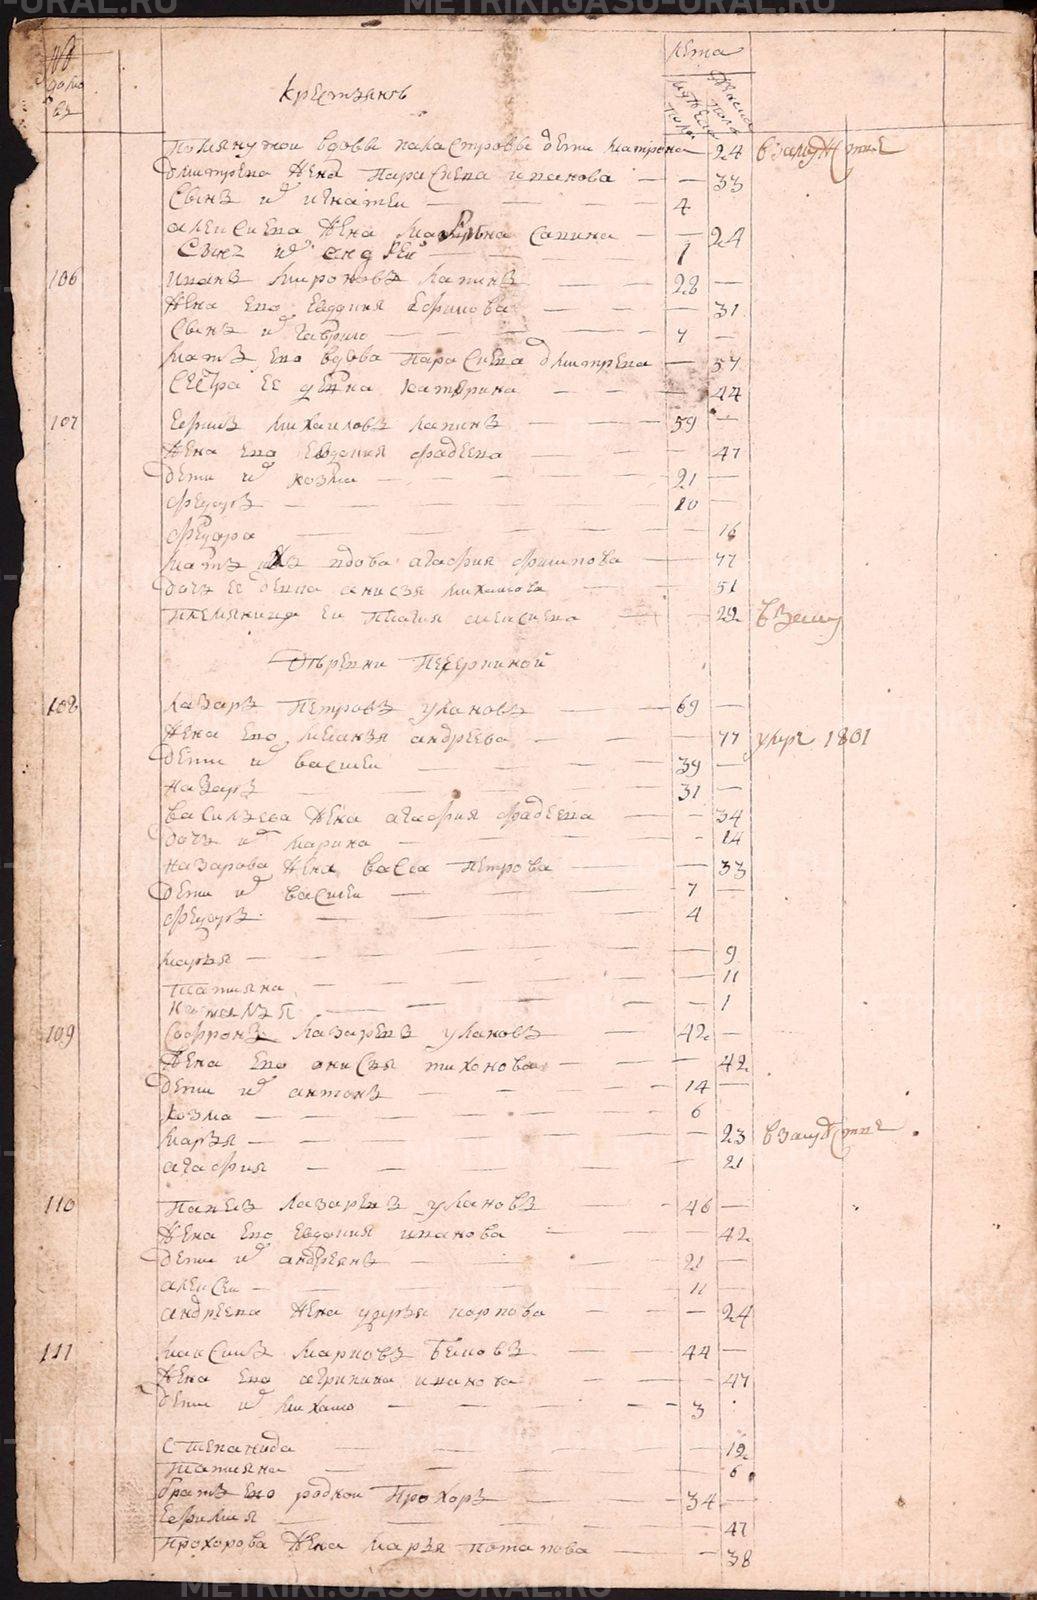 METRIKI.GASU-URAL.RU
№ домовъ
крестьянъ
лета
мужеска пола
женска пола
помянутой вдовы калистровы дети матрена — 24 взамужстве
дмитрева жена параскева иванова — — 33
сынъ их игнатеи — — — — 4
алексиева жена савина — — 24
сынъ их андреи — — 1
106 иванъ мироновъ лапинъ — — 28 —
жена ево евдокия ефимова — — — 31
сынъ их гаврило — — — 7 —
мать ево вдова параскева дмитрева — 57
сестра ее девка катерина — — — 44
107 ефимъ михаиловъ лапинъ — — — 59 —
жена ево евдокия фадеева — — — 47
дети их козма — — — — 21 —
феодоръ — — — — 10 —
феодора — — — — 16
мать ихъ вдова агафия филипова — — 77
дочь ее девка анисья михаилова — — 51
племяница еи — — 22 взаму
деревни
108 лазарь петровъ улановъ — — 69 —
жена ево андреева — — — 77 умре 1801
дети их василеи — — — 39 —
назаръ — — — — 31 —
васильева жена агафия фадеева — — 34
дочь их марина — — — — 14
назарова жена васса петрова — — 33
дети их василеи — — — 7 —
феодоръ — — — 4
марья — — — — 9
татияна — — — — 11
— — — 1
109 софронъ лазаревъ улановъ — — 42 —
жена ево анисья тихонова — — — 42
дети их антонъ — — — 14 —
козма — — — — 6
марья — — — — 23 взамужстве
агафия — — — — 21
110 лазаревъ улановъ — — 46 —
жена ево евдокия иванова — — — 42
дети их андреянъ — — — 21 —
алексеи — — — — 11
андреева жена дарья карпова — — — 24
111 максимъ марковъ — — 44 —
жена ево агрипина иванова — — — 47
дети их михаило — — — — 3
степанида — — — — 12
татияна — — — — 6
братъ ево родной прохоръ — — 34 —
ефимия — — — — 47
прохорова жена марья потапова — — 38
METRIKI.GASU-URAL.RU